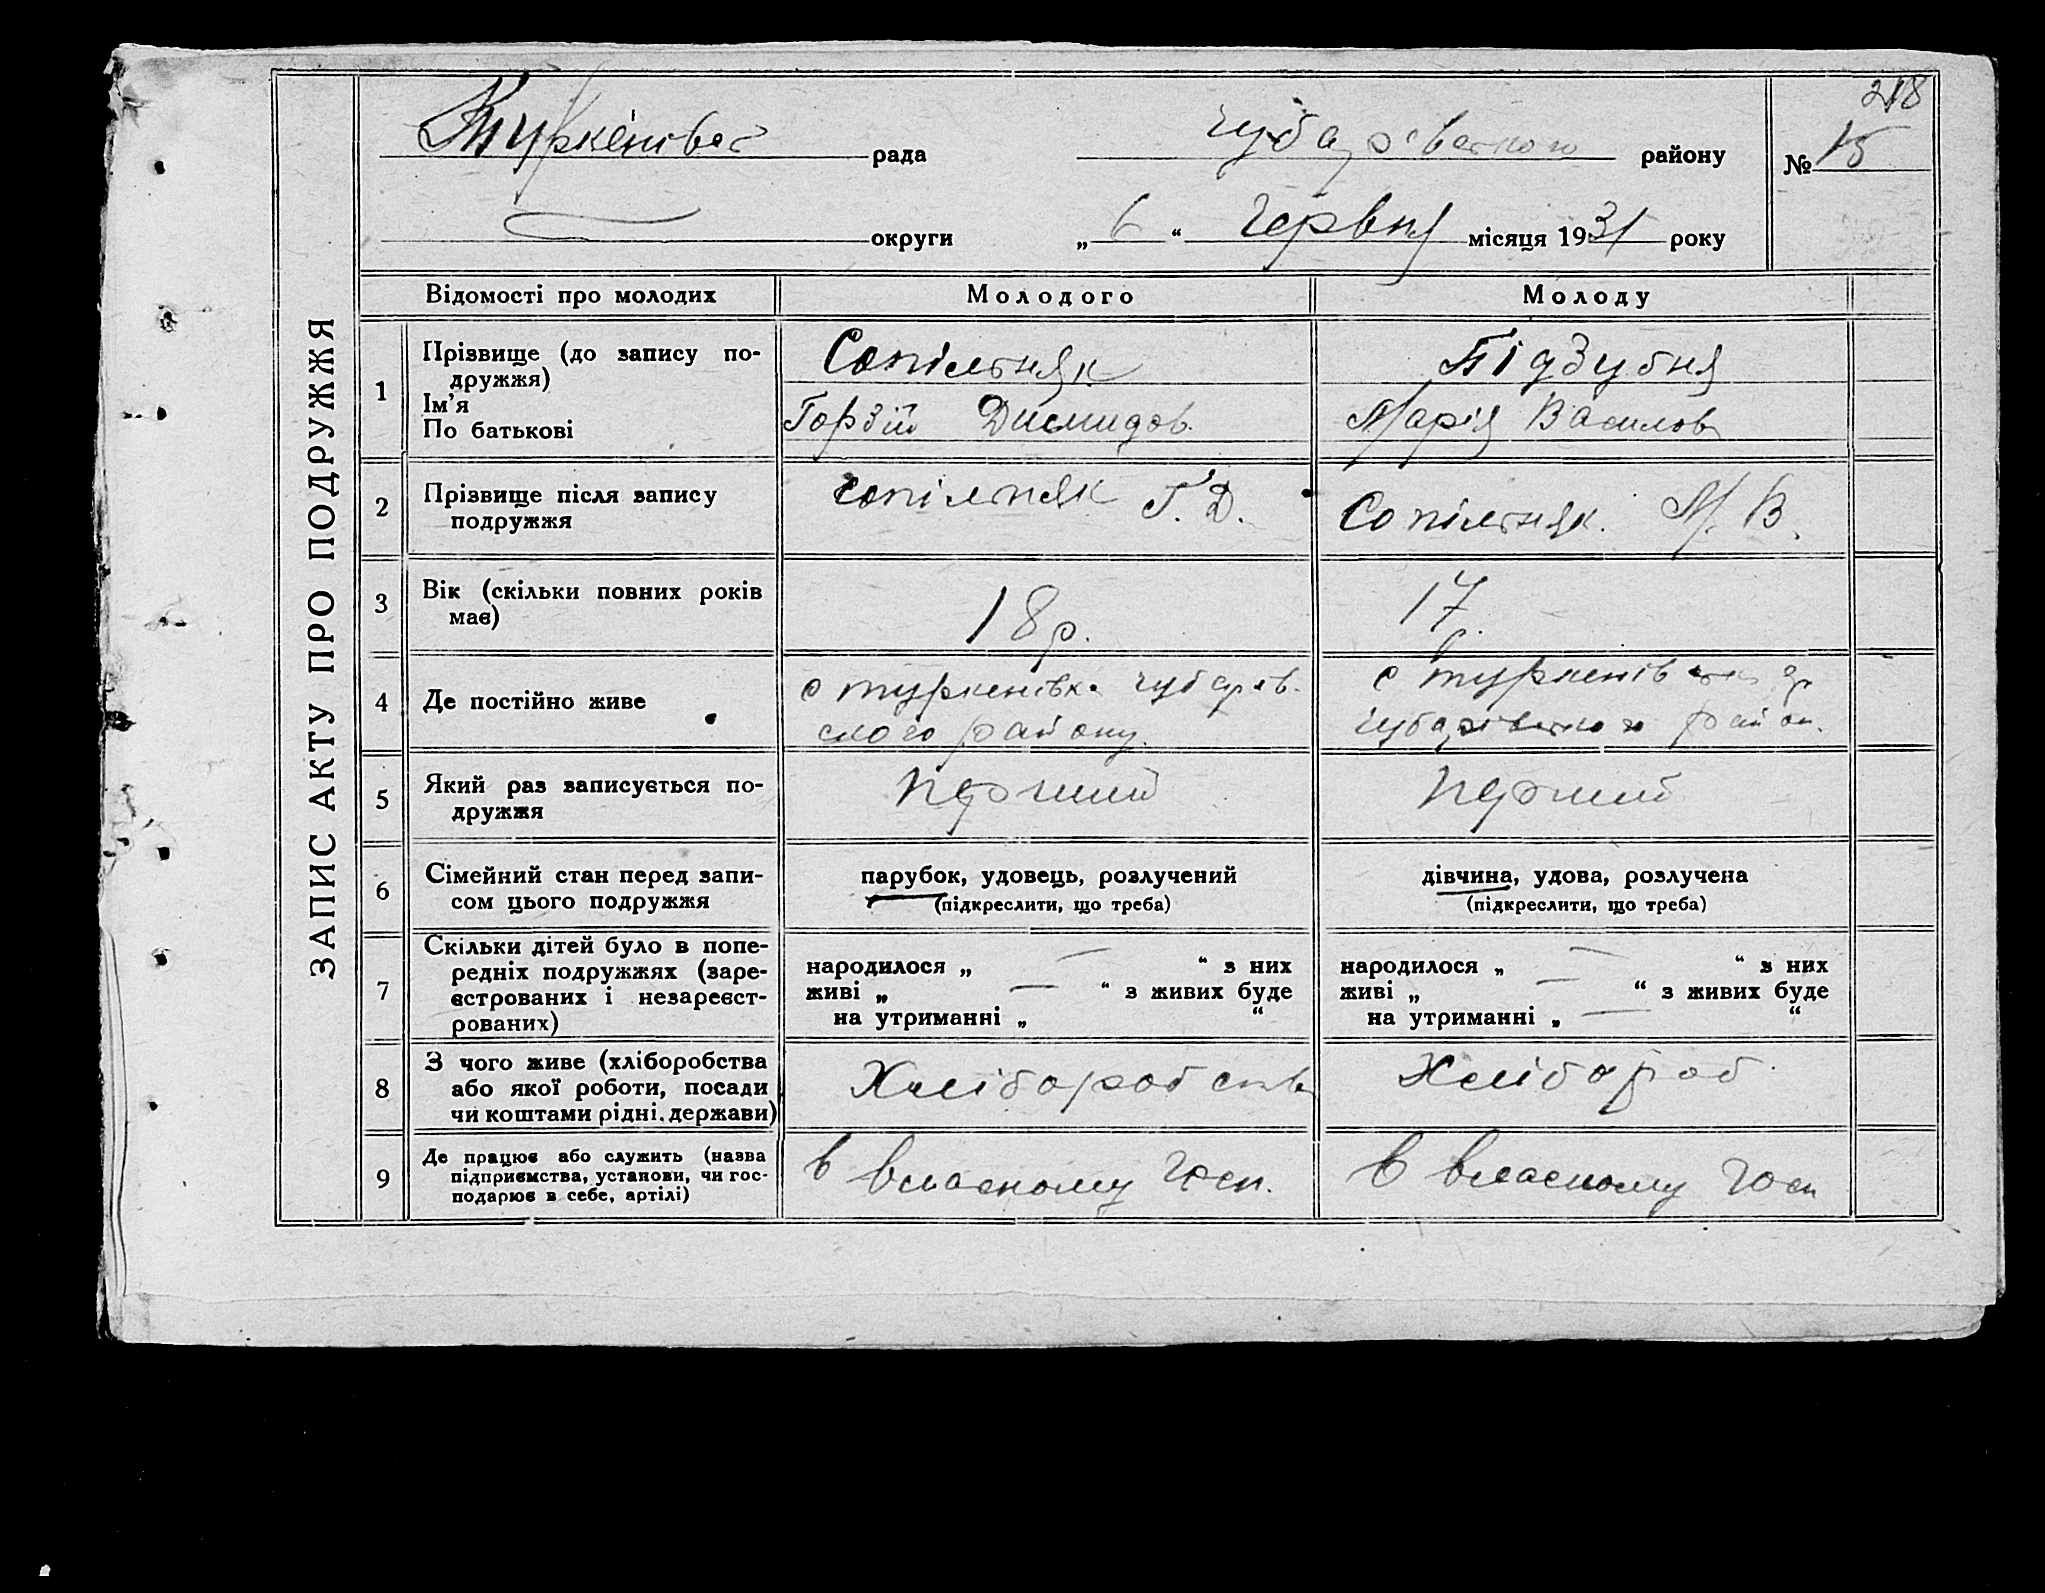 218
Туркенівс рада Чубарівського району № 15
округи „ 6 “ Червня місяця 1931 року
ЗАПИС АКТУ ПРО ПОДРУЖЖЯ
Відомості про молодих Молодого Молоду
1 Прізвище (до запису по-
дружжя)
Ім’я
По батькові
Сопільняк
Гордій Дисмидов.
Підзубня
Марія Василов
2 Прізвище після запису
подружжя
Сопільняк Г. Д.
Сопільняк. М. В.
3 Вік (скільки повних років
має)
18 р.
17 р.
4 Де постійно живе
с Туркенівка Чубарів-
ского району.
с Туркенівка
Чубарівського район.
5 Який раз записується по-
дружжя
перший
перший
6 Сімейний стан перед запи-
сом цього подружжя
парубок, удовець, розлучений
(підкреслити, що треба)
дівчина, удова, розлучена
(підкреслити, що треба)
7 Скільки дітей було в попе-
редніх подружжях (заре-
єстрованих і незареєст-
рованих)
народилося „ — “ з них
живі „ — “ з живих буде
на утриманні „ “
народилося „ — “ з них
живі „ — “ з живих буде
на утриманні „ — “
8 З чого живе (хліборобства
або якої роботи, посади
чи коштами рідні, держави)
Хліборобств
Хлібороб.
9 Де працює або служить (назва
підприємства, установи, чи гос-
подарює в себе, артілі)
в власному госп.
в власному госп